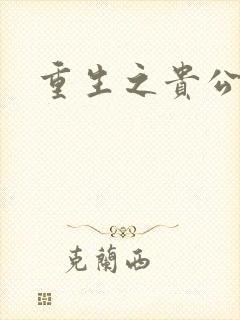 重生之貴公
克蘭西